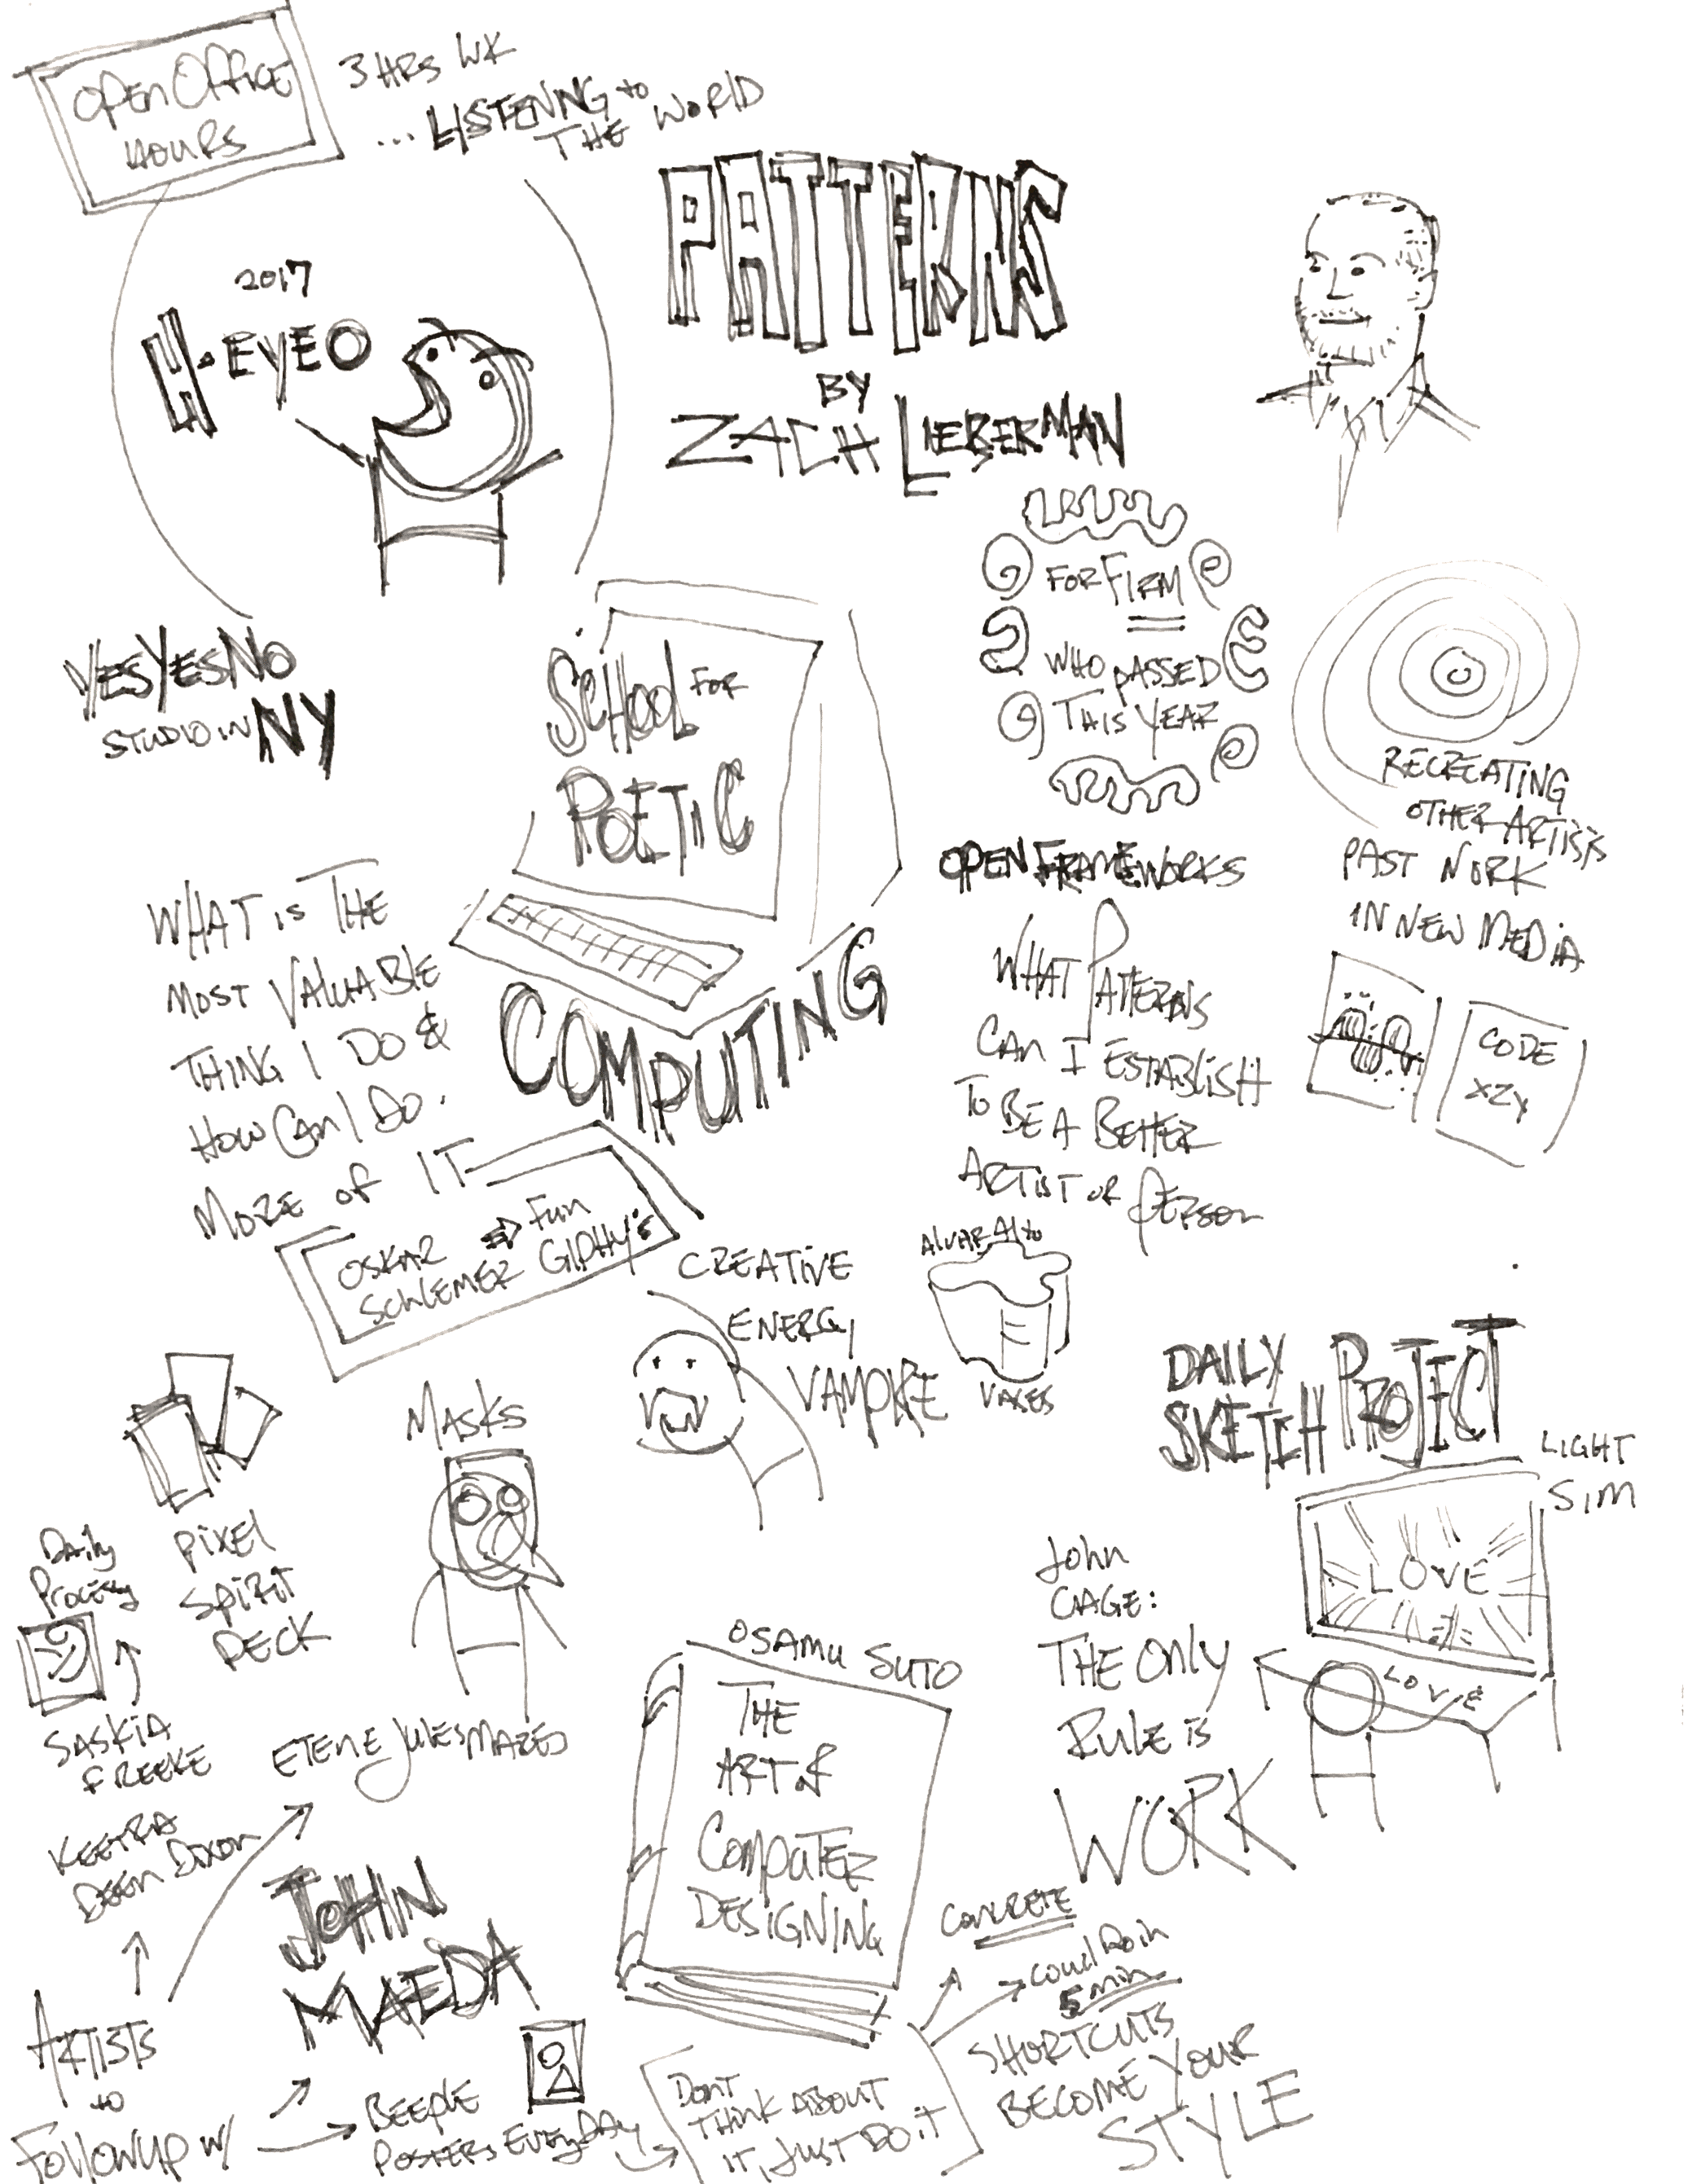 OPEN OFFICE
HOURS
3 HRS WK
... LISTENING to
THE WORLD
PATTERNS
BY
ZACH LIEBERMAN
2017
H-EYEO
YESYESNO
STUDIO IN NY
SCHOOL FOR
POETIC
COMPUTING
FOR FIRM
WHO PASSED
THIS YEAR
RECREATING
OTHER ARTISTS
PAST WORK
IN NEW MEDIA
CODE
XZY
OPENFRAMEWORKS
WHAT PATTERNS
CAN I ESTABLISH
TO BE A BETTER
ARTIST OR PERSON
WHAT IS THE
MOST VALUABLE
THING I DO &
HOW CAN I DO
MORE OF IT
OSKAR => FUN
SCHLEMER GIPHY'S
CREATIVE
ENERGY
VAMPIRE
ALVAR ALTO
VASES
DAILY
SKETCH PROJECT
LIGHT
SIM
LOVE
LOVE
JOHN
CAGE:
THE ONLY
RULE IS
WORK
MASKS
PIXEL
SPIRIT
DECK
Daily
SASKIA
FREEKE
ETENE JULES MAZES
KEETRA
DEEN DIXON
ARTISTS
to
FOLLOWUP W/
JOHN
MAEDA
BEEPLE
POSTERS EVERYDAY
OSAMU SUTO
THE
ART of
COMPUTER
DESIGNING
DONT
THINK ABOUT
IT, JUST DO IT
CONCRETE
COULD DO IN
5 MIN
SHORTCUTS
BECOME YOUR
STYLE